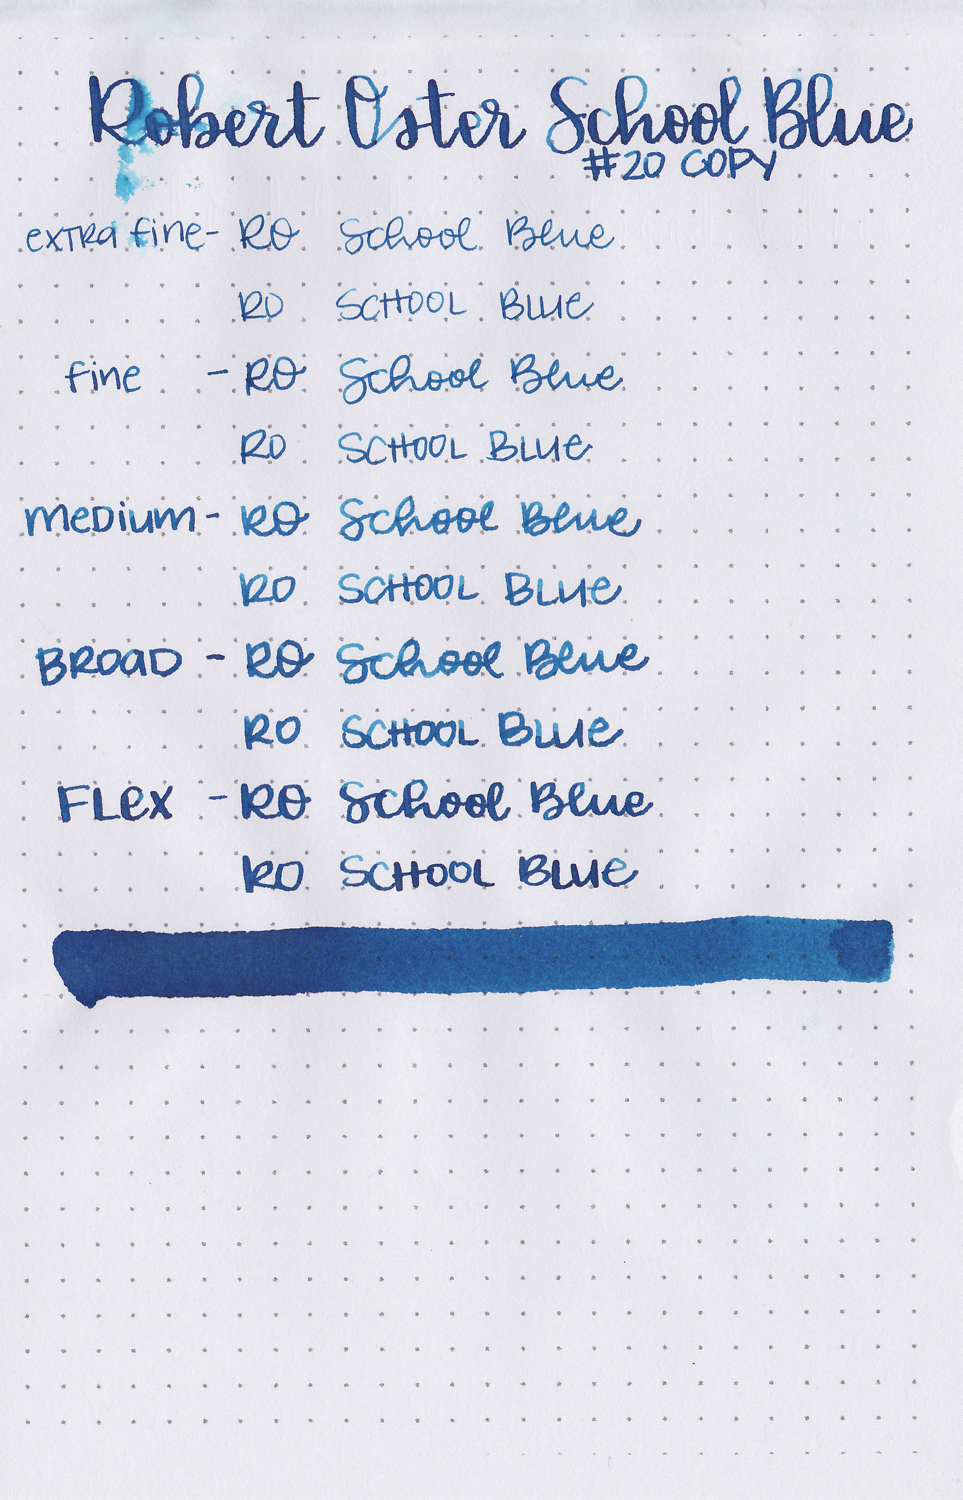 Robert Oster School Blue
#20 COPY
extra fine- RO School Blue
RO SCHOOL BLUE
fine - RO School Blue
RO SCHOOL BLUE
medium- RO School Blue
RO SCHOOL BLUE
BROAD - RO School Blue
RO SCHOOL BLUE
FLex - RO School Blue
RO SCHOOL BLUE